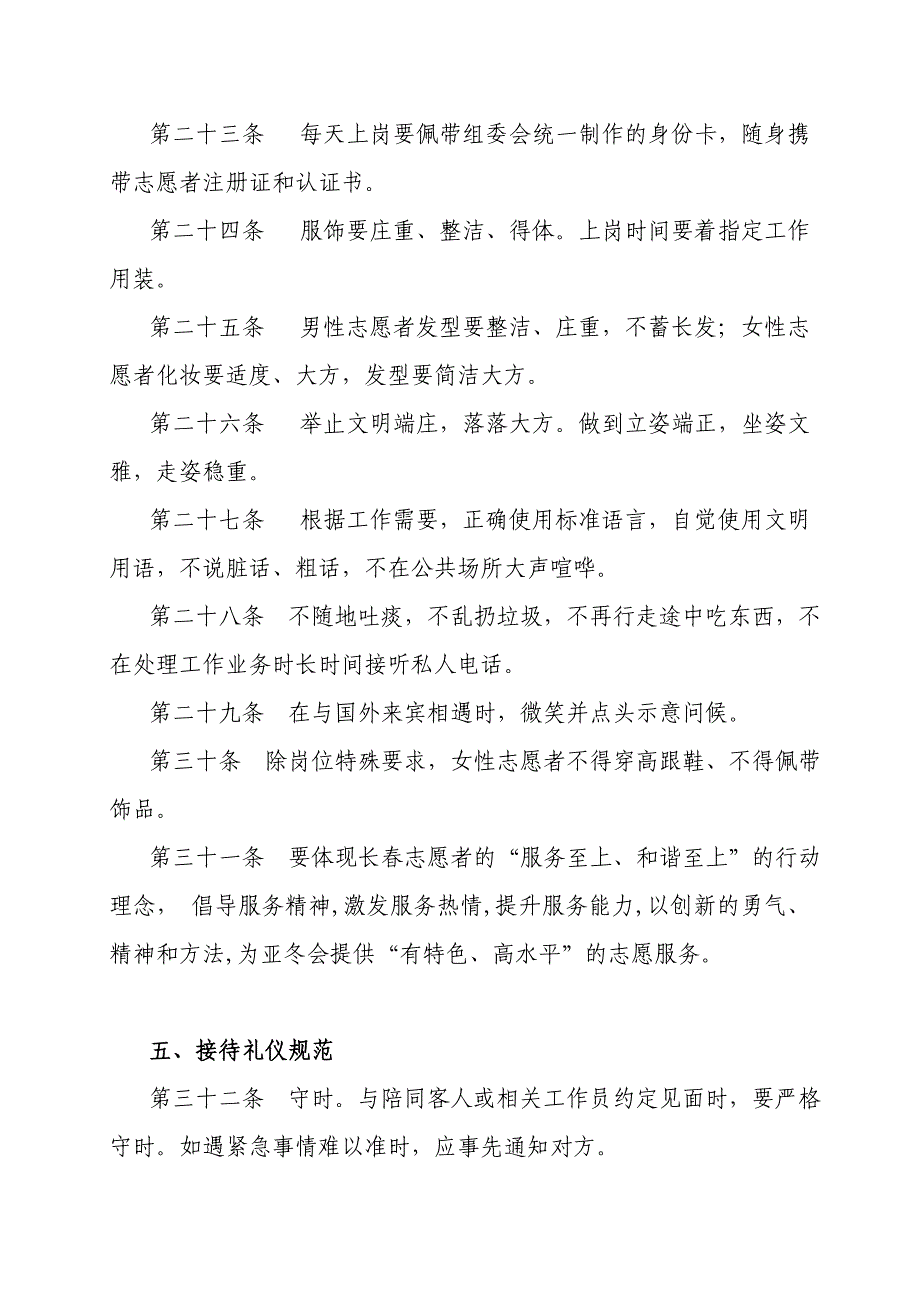 第二十三条　每天上岗要佩带组委会统一制作的身份卡，随身携
带志愿者注册证和认证书。
第二十四条　服饰要庄重、整洁、得体。上岗时间要着指定工作
用装。
第二十五条　男性志愿者发型要整洁、庄重，不蓄长发；女性志
愿者化妆要适度、大方，发型要简洁大方。
第二十六条　举止文明端庄，落落大方。做到立姿端正，坐姿文
雅，走姿稳重。
第二十七条　根据工作需要，正确使用标准语言，自觉使用文明
用语，不说脏话、粗话，不在公共场所大声喧哗。
第二十八条　不随地吐痰，不乱扔垃圾，不再行走途中吃东西，不
在处理工作业务时长时间接听私人电话。
第二十九条　在与国外来宾相遇时，微笑并点头示意问候。
第三十条　除岗位特殊要求，女性志愿者不得穿高跟鞋、不得佩带
饰品。
第三十一条　要体现长春志愿者的“服务至上、和谐至上”的行动
理念，　倡导服务精神,激发服务热情,提升服务能力,以创新的勇气、
精神和方法,为亚冬会提供“有特色、高水平”的志愿服务。
五、接待礼仪规范
第三十二条　守时。与陪同客人或相关工作员约定见面时，要严格
守时。如遇紧急事情难以准时，应事先通知对方。